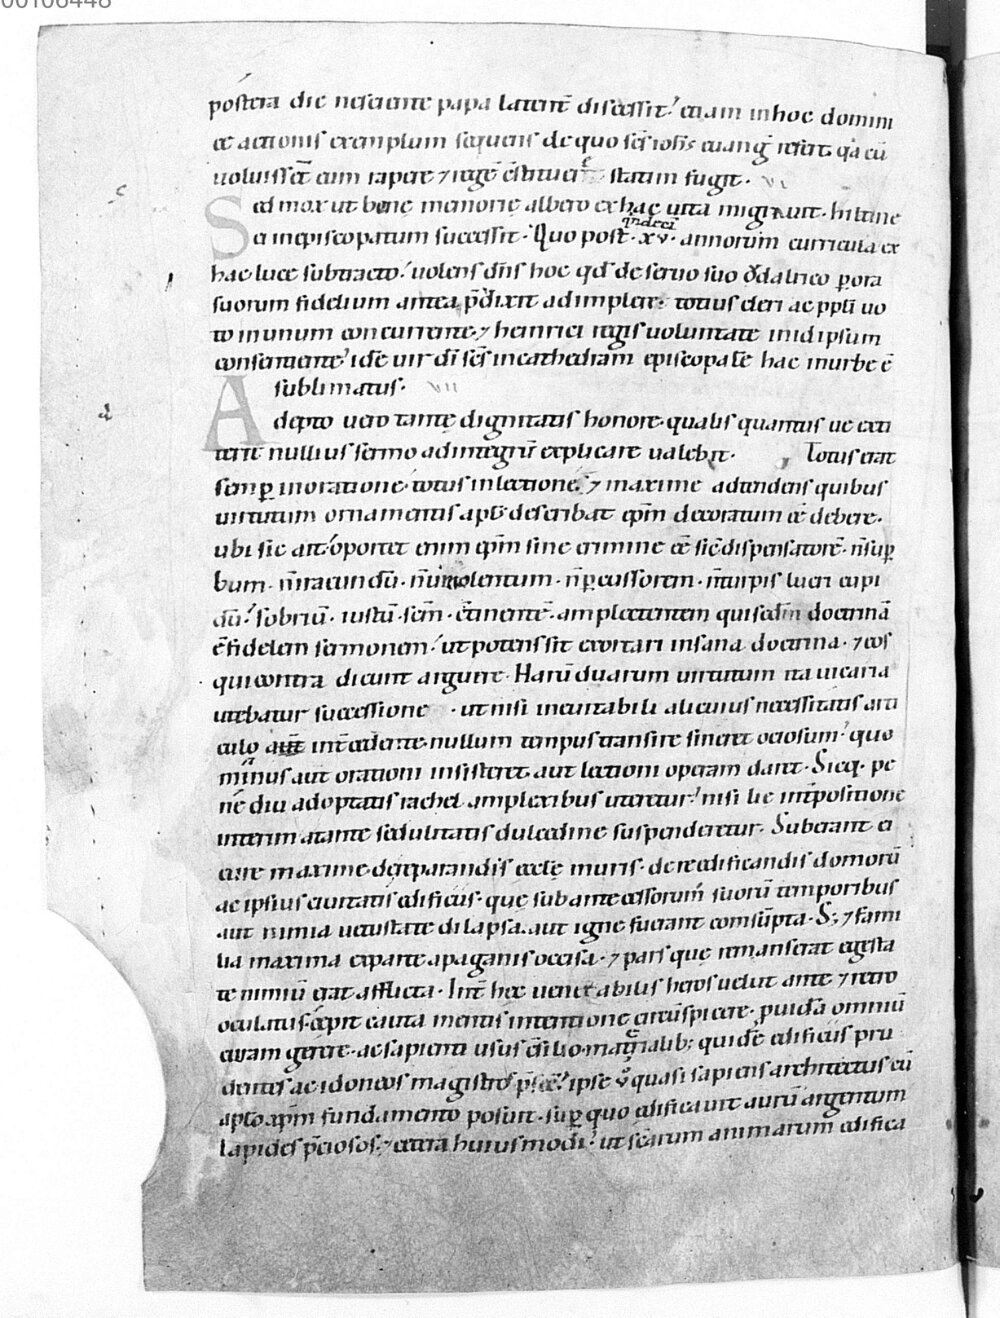 00106448
postera die nesciente papa latent̄ discessit. etiam in hoc domini
cę actionis exemplum sequens de quo sc̄s ioh̄s euanḡ refert. q̇a cū
uoluissēt eum rapere ⁊ regē c̄stituere statim fugit. VI
Sed mox ut bonę memorię albero ex hac uita migrauit. hiltine
c in episcopatum successit. Quo post .xv. quindecī annorum curricula ex
hac luce subtracto. uolens dn̄s hoc qd̄ de seruo suo ǒdalrico p̱ ora
suorum fidelium antea p̄dixit adimplere. totius cleri ac pp̄li uo
to in unum concurrente. ⁊ heinrici regis uoluntate in id ipsum
consentiente. idē uir dī sc̄s in cathedram episcopalē hac in urbe ē
sublimatus. VII
Adepto uero tantę dignitatis honore. qualis quantus ue exti
terit nullius sermo ad integrū explicare ualebit. Totus erat
semp̱ in oratione. totus in lectione. ⁊ maxime attendens quibus
uirtutum ornamentis apl̄s describat ep̄m decoratum eē debere.
ubi sic ait. oportet enim ep̄m sine crimine eē sic̄ dispensatorē. n̄ sup̱
bum. n̄ iracundū. n̄ uinolentum. n̄ p̱cussorem. n̄ turpis lucri cupi
dū. sobriū. iustū. sc̄m. c̄tinentē. amplectentem qui scd̄m doctrinā
ē fidelem sermonem. ut potens sit exortari in sana doctrina. ⁊ eos
qui contra dicunt arguere. Harū duarum uirtutum ita uicaria
utebatur successione . ut nisi ineuitabili alicuius necessitatis arti
culo int̄cedente. nullum tempus transire sineret ociosum. quo
minus aut orationi insisteret. aut lectioni operam daret. Sicq. pe
ne diu adoptatis rachel amplexibus uteretur. nisi lię int̄positione
interim a tantę sedulitatis dulcedine suspenderetur. Suberant ei
curę maxime de rep̱arandis ecclę muris. de reedificandis domorū
ac ipsius ciuitatis ędificiis. quę sub antecessorum suorū temporibus
aut nimia uetustate dilapsa. aut igne fuerant comsūpta. S; ⁊ fami
lia maxima ex parte a paganis occisa. ⁊ pars quę remanserat egesta
te nimiū erat afflicta. Int̄ hec uenerabilis heros uelut ante ⁊ retro
oculatus. cepit cauta mentis intentione circūspicere. p̱uidā omniū
curam gerere. ac sapienti usus c̄silio. mat̄ialib; quidē edificiis pru
dentes ac idoneos magistros p̄fec̄. ipse ū quasi sapiens architectus cū
apl̄o xp̄m fundamento posuit. sup̱ quo edificauit aurū argentum
lapides p̄ciosos. ⁊ cetera huiusmodi. ut sc̄arum animarum edifica